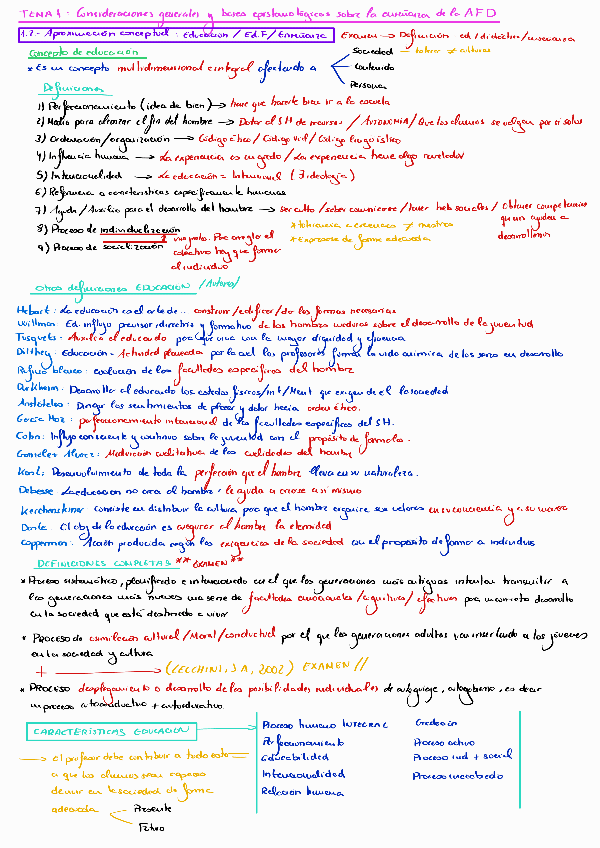 TEMA 1: Consideraciones generales y bases epistemológicas sobre la enseñanza de la AFD
1.2.- Aproximación conceptual: Educación / Ed.F / Enseñanza Examen → Definición ed / didáctica / enseñanza
Concepto de educación
* Es un concepto multidimensional e integral afectando a
Sociedad → valores ≠ culturas
Contenido
Persona
Definiciones
1) Perfeccionamiento (idea de bien) → hace que hacerle bien ir a la escuela
2) Medio para alcanzar el fin del hombre → Dotar al SH de recursos / AUTONOMIA / Que los alumnos se valgan por sí solos
3) Ordenación/organización → Código ético / Código civil / Código lingüístico
4) Influencia humana → La experiencia es un grado / La experiencia tiene algo revelador
5) Intencionalidad → La educación = Intencional (∃ ideología)
6) Referencia a características específicamente humanas
7) Ayuda/Auxilio para el desarrollo del hombre → Ser culto / saber comunicarse / tener hab sociales / Obtener competencias
que me ayuden a
desarrollarme
8) Proceso de individualización
9) Proceso de socialización
van juntos. Para arreglar el
colectivo hay que formar
al individuo
* Tolerancia a creencias ≠ nuestras
* Expresarse de forma adecuada
Otras definiciones EDUCACIÓN /Autores/
Hebart: La educación es el arte de... construir/edificar/dar las formas necesarias
Willman: Ed. influjo previsor, directriz y formativo de los hombres maduros sobre el desarrollo de la juventud
Tusquets: Auxilia al educando para que viva con la mayor dignidad y eficiencia
Dilthey: Educación = Actividad planeada por la cual los profesores forman la vida anímica de los seres en desarrollo
Rufino blanco: evolución de las facultades específicas del hombre
Durkheim: Desarrollar al educando los estados físicos/int/Ment que exigen de él la sociedad
Aristóteles: Dirigir los sentimientos de placer y dolor hacia orden ético.
García Hoz: perfeccionamiento intencional de las facultades específicas del SH.
Cohn: Influjo consciente y continuo sobre la juventud con el propósito de formarla.
González Álvarez: Modificación cualitativa de las cualidades del hombre
Kant: Desenvolvimiento de toda la perfección que el hombre lleva en su naturaleza.
Debesse: La educación no crea al hombre, le ayuda a crearse a sí mismo
Kerchensteiner: consiste en distribuir la cultura para que el hombre organice sus valores en su conciencia y a su manera
Dante: El obj de la educación es asegurar al hombre la eternidad
Copperman: Acción producida según las exigencias de la sociedad con el propósito de formar a individuos
DEFINICIONES COMPLETAS ** EXAMEN **
* Proceso sistemático, planificado e intencionado en el que las generaciones más antiguas intentan transmitir a
las generaciones más nuevas una serie de facultades emocionales/cognitivas/afectivas para un correcto desarrollo
en la sociedad que está destinado a vivir
* Proceso de asimilación cultural/Moral/conductual por el que las generaciones adultas van insertando a los jóvenes
en la sociedad y cultura
+ → (LECCHINI, J.A, 2002) EXAMEN //
* Proceso desplegamiento o desarrollo de las posibilidades individuales de autoguiaje, autogobierno, es decir
un proceso autoconductivo + autoeducativo.
CARACTERÍSTICAS EDUCACIÓN
→ el profesor debe contribuir a todo esto
a que los alumnos sean capaces
de vivir en la sociedad de forma
adecuada
Presente
Futuro
Proceso humano INTEGRAL
Perfeccionamiento
Educabilidad
Intencionalidad
Relación humana
Gradación
Proceso activo
Proceso ind + social
Proceso inacabado